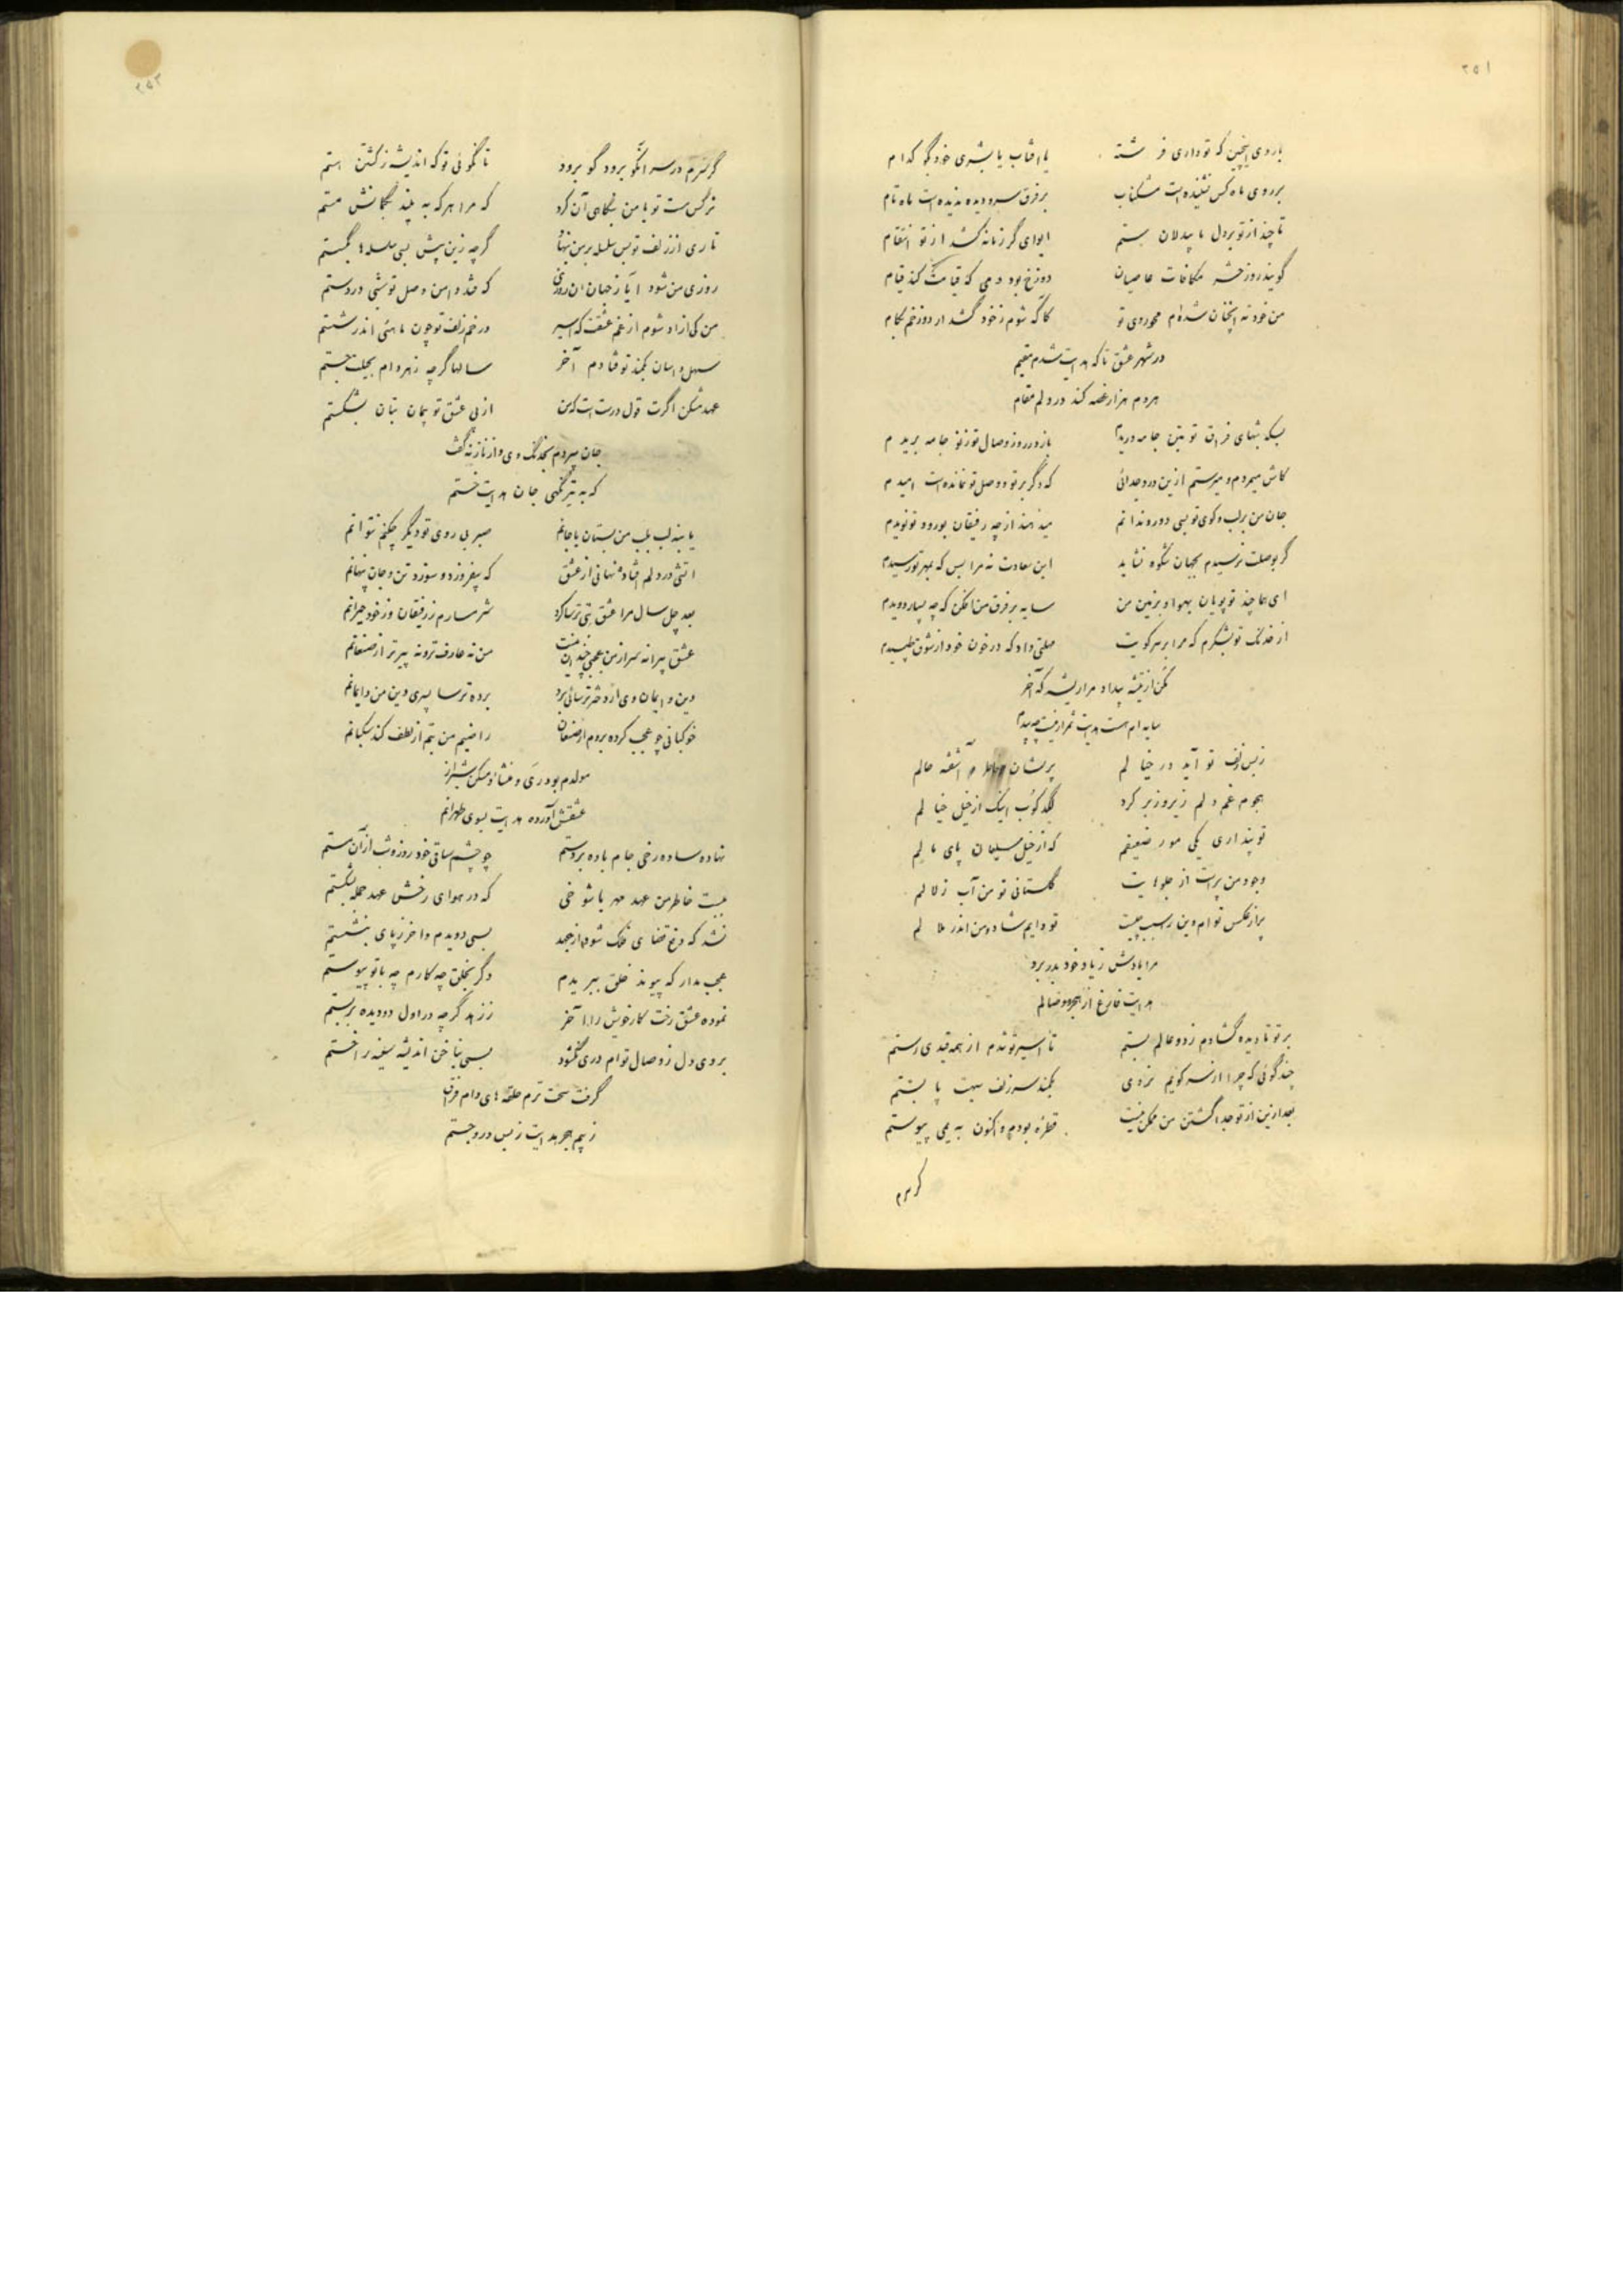 ۲۵۱
با روی اینچنین که تو داری فرشته یا افتاب یا بشری خود بگو کدام
بر روی ماه کس نشنیده است مشکناب بر فرق سرو دیده ندیده است ماه تام
تا چند از تو بر دل ما بیدلان ستم ای وای گر زمانه کشد از تو انتقام
گویند روز حشر مکافات عاصیان دوزخ بود دمی که قیامت کند قیام
من خود نه انچنان شده‌ام محو روی تو کاگه شوم ز خود کشد ار دوزخم بکام
در شهر عشق تا که هدایت شدم مقیم
هر دم هزار غصه کند در دلم مقام
بسکه شبهای فراق تو بتن جامه دریدم باز در روز وصال تو ز نو جامه بریدم
کاش میمردم و میرستم ازین درد جدائی که دگر بر تو و وصل تو نمانده است امیدم
جان من بر لب و کوی تو بسی دور و ندانم میدهند از چه رفیقان بورود تو نویدم
گر بوصلت نرسیدم بجهان شکوه نشاید این سعادت نه مرا بس که بمهر تو رسیدم
ای هما چند تو پویان بهوا و بزمین من سایه بر فرق من افکن که چه بسیار دویدم
از خدنگ تو بشکرم که مرا بر سر کویت مهلتی داد که در خون خود از شوق طپیدم
مکن از تیشه بیداد مرا ریشه که آخر
سایه ام هست هدایت ثمر ار نیست چه بیدم
ز بس زلف تو آید در خیالم پریشان خاطرم آشفته حالم
هجوم غم دلم زیر و زبر کرد لگدکوب اینک از خیل خیالم
تو پنداری یکی مور ضعیفم که از خیل سلیمان پای مالم
وجود من پر است از جلوهایت گلستانی تو من آب زلالم
پر از عکس توام وین را سبب چیست تو دایم شاد و من اندر ملالم
مرا یادش ز یاد خود بدر برد
هدایت فارغ از هجر و وصالم
بر تو تا دیده گشادم ز دو عالم بستم تا اسیر تو شدم از همه قیدی رستم
چند گوئی که چرا از سر کویم نروی بکمند سر زلف سیهت پا بستم
بعد ازین از تو جدا گشتن من ممکن نیست قطره بودم و اکنون به یمی پیوستم
گر سرم
۲۵۲
گر سرم در سر انکو برود گو برود تا نگوئی تو که اندیشه ز کشتن هستم
نرگس مست تو با من نگاهی آن کرد که مرا هر که به بیند بگمانش مستم
تاری از زلف تو بس سلسله بر من بنهاد گرچه زین پیش بسی سلسله‌ها بگسستم
روزی من شود آیا ز جهان ان روزی که فتد دامن وصل تو شبی در دستم
من کی ازاد شوم از غم عشقت که اسیر در خم زلف تو چون ماهئی اندر شستم
سهل و اسان بکمند تو فتادم آخر سالها گرچه ز هر دام بحیلت جستم
عهد مشکن اگرت قول درست است که من از پی عشق تو پیمان بتان بشکستم
جان سپردم بخدنگ وی و از ناز نگفت
که به تیر نگهی جان هدایت خستم
یا بنه لب بلب من بستان یا جانم صبر بی روی تو دیگر چکنم نتوانم
اتشی در دلم افتاده نهانی از عشق که بیفروزد و سوزد تن و جان پنهانم
بعد چل سال مرا عشق بتی ترسا کرد شرمسارم ز رفیقان وز خود حیرانم
عشق پیرانه سر از من عجبی چندان نیست من نه عارف‌تر و نه پیرتر از صنعانم
دین و ایمان وی ار دختر ترسائی برد برده ترسا پسری دین من و ایمانم
خوکبانی چو عجب کرده بردم از صنعان راضیم من بتم از لطف کند سگبانم
مولدم بود ری و منشاء و مسکن شیراز
عشقش آورده هدایت بسوی طهرانم
نهاده ساده رخی جام باده بر دستم چو چشم ساقی خود روز و شب از آن مستم
ببست خاطر من عهد مهر با شوخی که در هوای رخش عهد جمله بشکستم
نشد که دفع قضای فلک شود از جهد بسی دویدم و اخر ز پای بنشستم
عجب مدار که پیوند خلق ببریدم دگر بخلق چه کارم چه با تو پیوستم
نموده عشق رخت کار خویش را آخر ز زهد گرچه در اول دو دیده بر بستم
بروی دل ز وصال توام دری نگشود بسی بناخن اندیشه سینه را خستم
گرفت سخت ترم حلقه‌های دام فراق
ز بیم هجر هدایت ز بس درو جستم